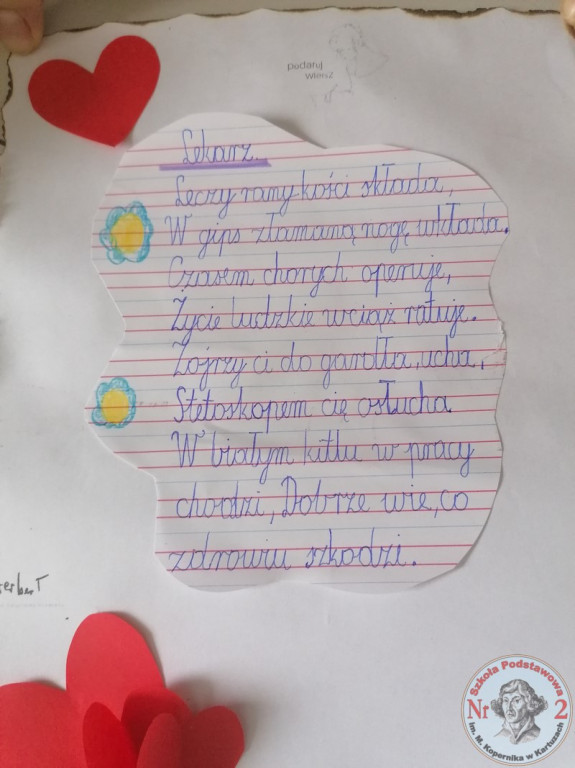 podaruj
wiersz
Lekarz.
Leczy rany kości składa,
W gips złamaną nogę wkłada.
Czasem chorych operuje,
Życie ludzkie wciąż ratuje.
Zajrzy ci do gardła, ucha,
Stetoskopem cię osłucha
W białym kitlu w pracy
chodzi, Dobrze wie, co
zdrowiu szkodzi.
Szkoła Podstawowa
Nr 2
im. M. Kopernika w Kartuzach